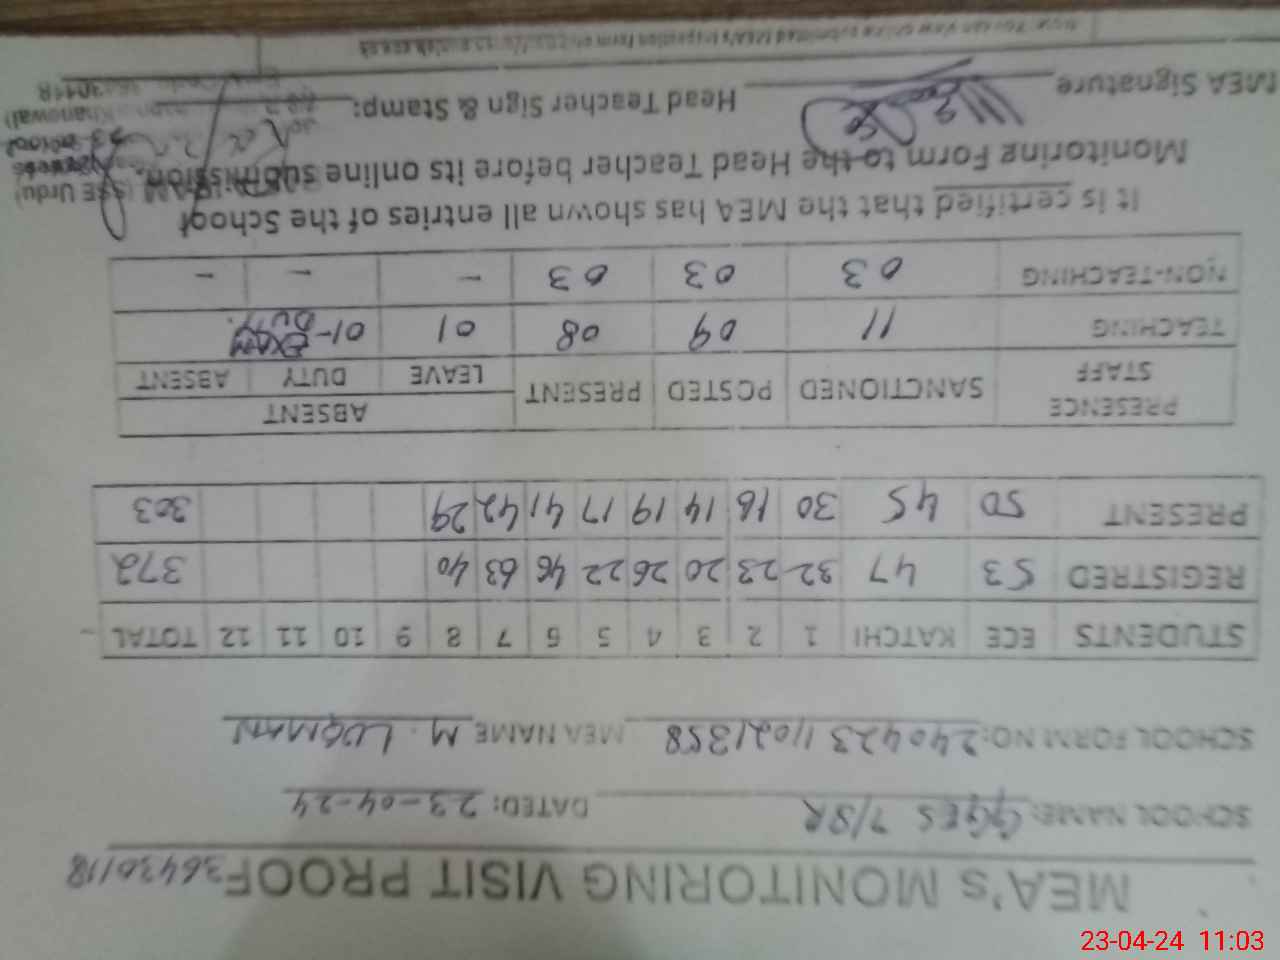 MEA's MONITORING VISIT PROOF 36430118
SCHOOL NAME: GGES 7/SR DATED: 23-04-24
SCHOOL FORM NO: 24042311021358 MEA NAME M. LUQMAN
STUDENTS ECE KATCHI 1 2 3 4 5 6 7 8 9 10 11 12 TOTAL
REGISTRED 53 47 32 23 20 26 22 46 63 40 372
PRESENT 50 45 30 16 14 19 17 41 42 29 303
PRESENCE STAFF SANCTIONED POSTED PRESENT ABSENT
LEAVE DUTY ABSENT
TEACHING 11 09 08 01 01-EXAM DUTY.
NON-TEACHING 03 03 03 - - -
It is certified that the MEA has shown all entries of the School
Monitoring Form to the Head Teacher before its online submission.
(SSE Urdu)
MEA Signature Head Teacher Sign & Stamp:
Khanewal)
36430118
Note: You can view online submitted MEA's inspection form on
23-04-24 11:03